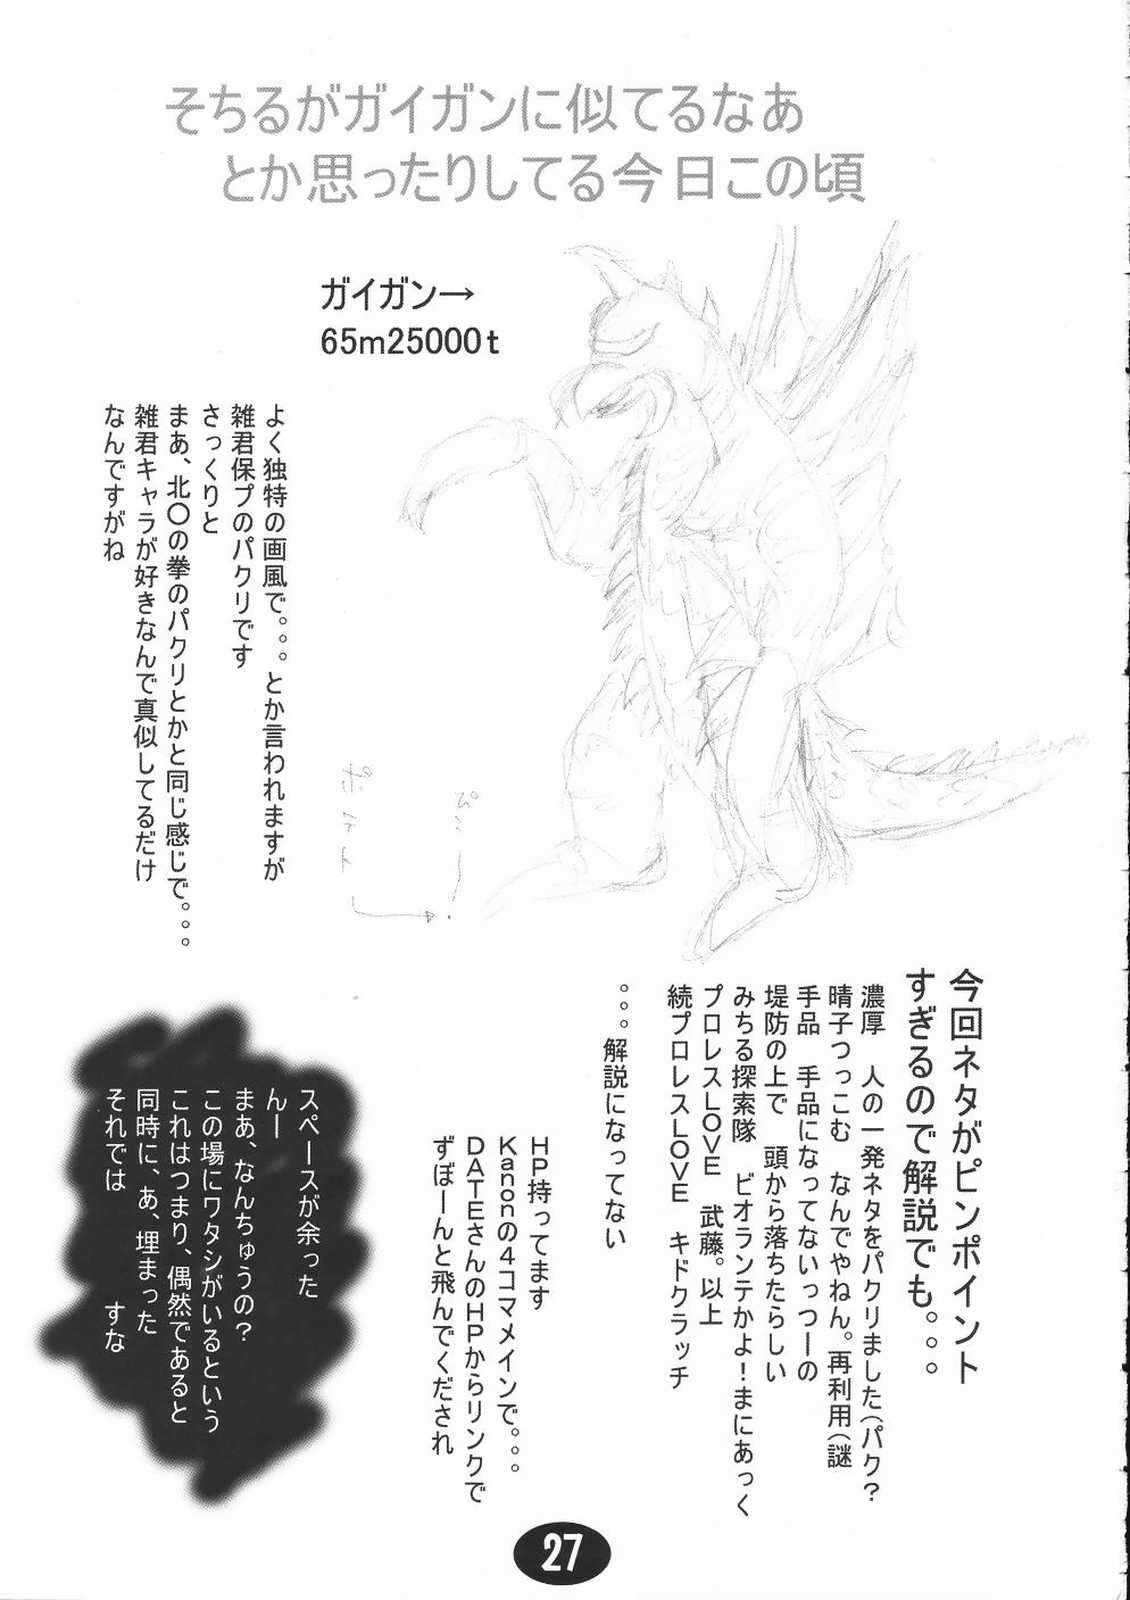 そちるがガイガンに似てるなあ
とか思ったりしてる今日この頃
ガイガン→
65m25000t
よく独特の画風で。。。とか言われますが
雑君保プのパクリです
さっくりと
まあ、北〇の拳のパクリとかと同じ感じで。。。
雑君キャラが好きなんで真似してるだけ
なんですがね
ぴこー!
ポテト
今回ネタがピンポイント
すぎるので解説でも。。。
濃厚　人の一発ネタをパクリました(パク?
晴子つっこむ　なんでやねん。再利用(謎
手品　手品になってないっつーの
堤防の上で　頭から落ちたらしい
みちる探索隊　ビオランテかよ!まにあっく
プロレスLOVE　武藤。以上
続プロレスLOVE　キドクラッチ
。。。解説になってない
HP持ってます
Kanonの4コマメインで。。。
DATEさんのHPからリンクで
ずぼーんと飛んでくだされ
スペースが余った
んー
まあ、なんちゅうの?
この場にワタシがいるという
これはつまり、偶然であると
同時に、あ、埋まった
それでは　　　すな
27